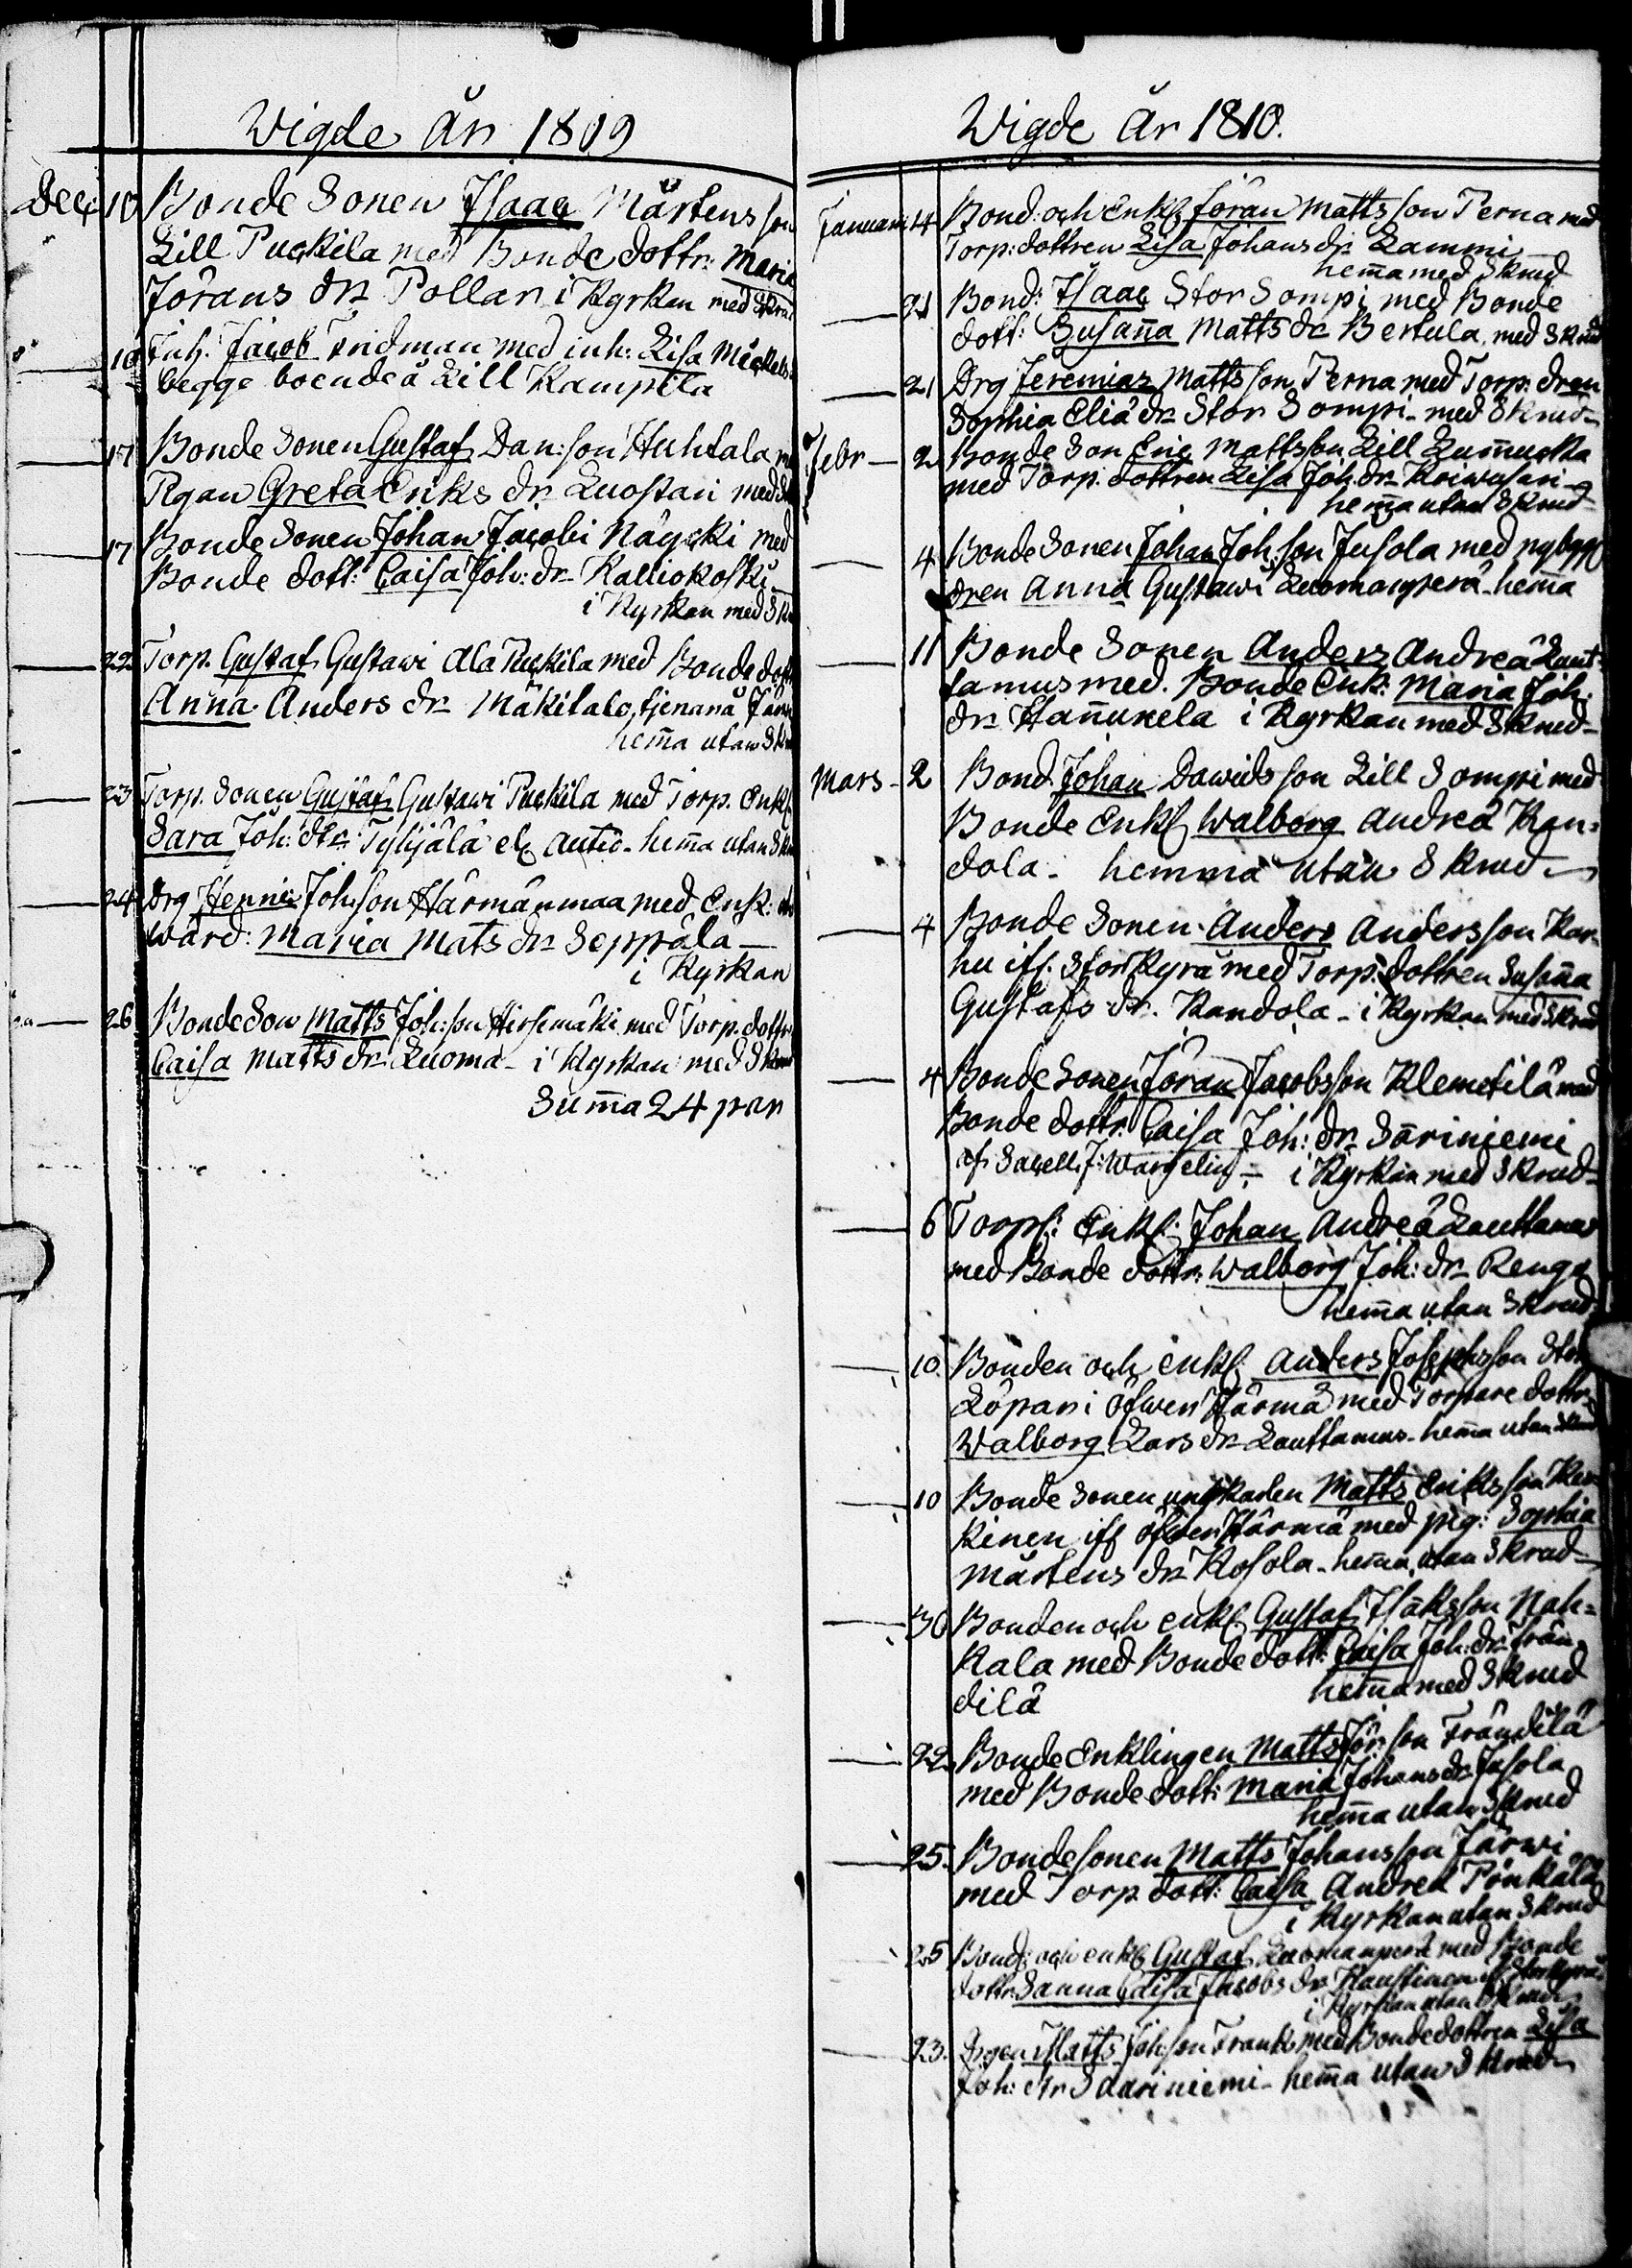 Wigde År 1809
Dec: 10 Bonde Sonen Isaac Mårtensson
Lill Puckila med Bonde dottr: Maria
Jörans dr Pollari i Kyrkan med Skru
10 Inh. Jacob Fridman med inh: Lisa Mickels
begge boende å Lill Kampila
17 Bonde Sonen Gustaf Dan:son Huhtala
Pigan Greta Eriks dr Luopari med
17 Bonde Sonen Johan Jacobi Näycki med
Bonde dott: Caisa Joh: dr Kalliokoski
i Kyrkan med Sk
22 Torp. Gustaf Gustawi Ala Puckila med Bonde dott
Anna Anders dr Mäkitalo, tjenana
hem̄a utan Sk
23 Torp. Sonen Gustaf Gustawi Puckila med Torp. Enkl
Sara Joh: dtr: Tyhjälä el Autio - hem̄a utan Sk
24 Drg Henric Joh:son Härmänmaa med Enk:
Wärd: Maria Mats dr Seppälä —
i Kyrkan
26 Bonde Son Matts Joh:son Hirsimäki med Torp. dottr
Caisa Matts dr Luoma - i Kyrkan med Skrud
Sum̄a 24 par
Wigde År 1810.
Januari 14 Bond: och Enkl Jöran Mattsson Perna med
Torp: dottren Lisa Johans dr Lammi
hem̄a med Skrud
21 Bond: Isaac Stor Sompi med Bonde
dott: Susan̄a Matts dr Bertula, med Skrud
21 Drg Jeremias Mattsson Perna med Torp. dren
Sophia Eliæ dr Stor Sompi - med Skrud -
Febr — 2 Bonde Son Eric Mattsson Lill Lum̄ucka
med Torp. dottren Lisa Joh. dr Koiwusari -
hem̄a utan Skrud
4 Bonde Sonen Johan Joh:son Jusola med nybygg
dren Anna Gustawi Luomanperä - hem̄a
11 Bonde Sonen Anders Andreæ Laut-
tamus med Bonde Enk: Maria Joh:
dr Han̄ukela i Kyrkan med Skrud -
Mars - 2 Bond. Johan Dawidsson Lill Sompi med
Bonde Enkl Walborg Andreæ Kan-
dola - hemma utan Skrud
4 Bonde Sonen Anders Andersson Kar-
hu ifr. Storkyrå med Torp: dottren Susan̄a
Gustafs dr. Kandola - i Kyrkan med Skrud
4 Bonde Sonen Jöran Jacobsson Klemetilä med
Bonde dottr: Caisa Joh: dr Säriniemi
af Sacell. J: Wargelin - i Kyrkan med Skrud -
6 Torp: Enkl: Johan Andreæ Lauttamus
med Bonde dottr: Walborg Joh: dr Rengo
hem̄a utan Skrud
10 Bonden och enkl Anders Josephsson
Löpari i öfwer Härmä med Torpare dottr:
Walborg Lars dr Lauttamus - hem̄a utan Skrud
10 Bonde Sonen ungkarlen Matts Eriksson
kinen ifr öfwer Härmä med pig: Sophia
Mårtens dr Kosola - hem̄a utan Skrud -
30 Bonden och enkl Gustaf Isaksson Nah-
kala med Bonde dott: Caisa Joh: dr Frän
dilä hem̄a med Skrud
22 Bonde Enklingen Matts Jör:son Frändilä
med Bonde dott: Maria Johans dr Jusola
hem̄a utan Skrud
25. Bonde sonen Matts Johansson Järwi
med Torp dott: Caisa Andreæ Pönkälä
i Kyrkan utan Skrud
25 Bond: och enkl Gustaf Luomanperä med Bonde
dottr: Sanna Caisa Jacobs dr Kaustinen if Storkyrå
i Kyrkan utan Skrud
23. Drgen Matts Joh:son Frank med Bonde dottren Lisa
Joh: dtr Saariniemi - hem̄a utan Skrud